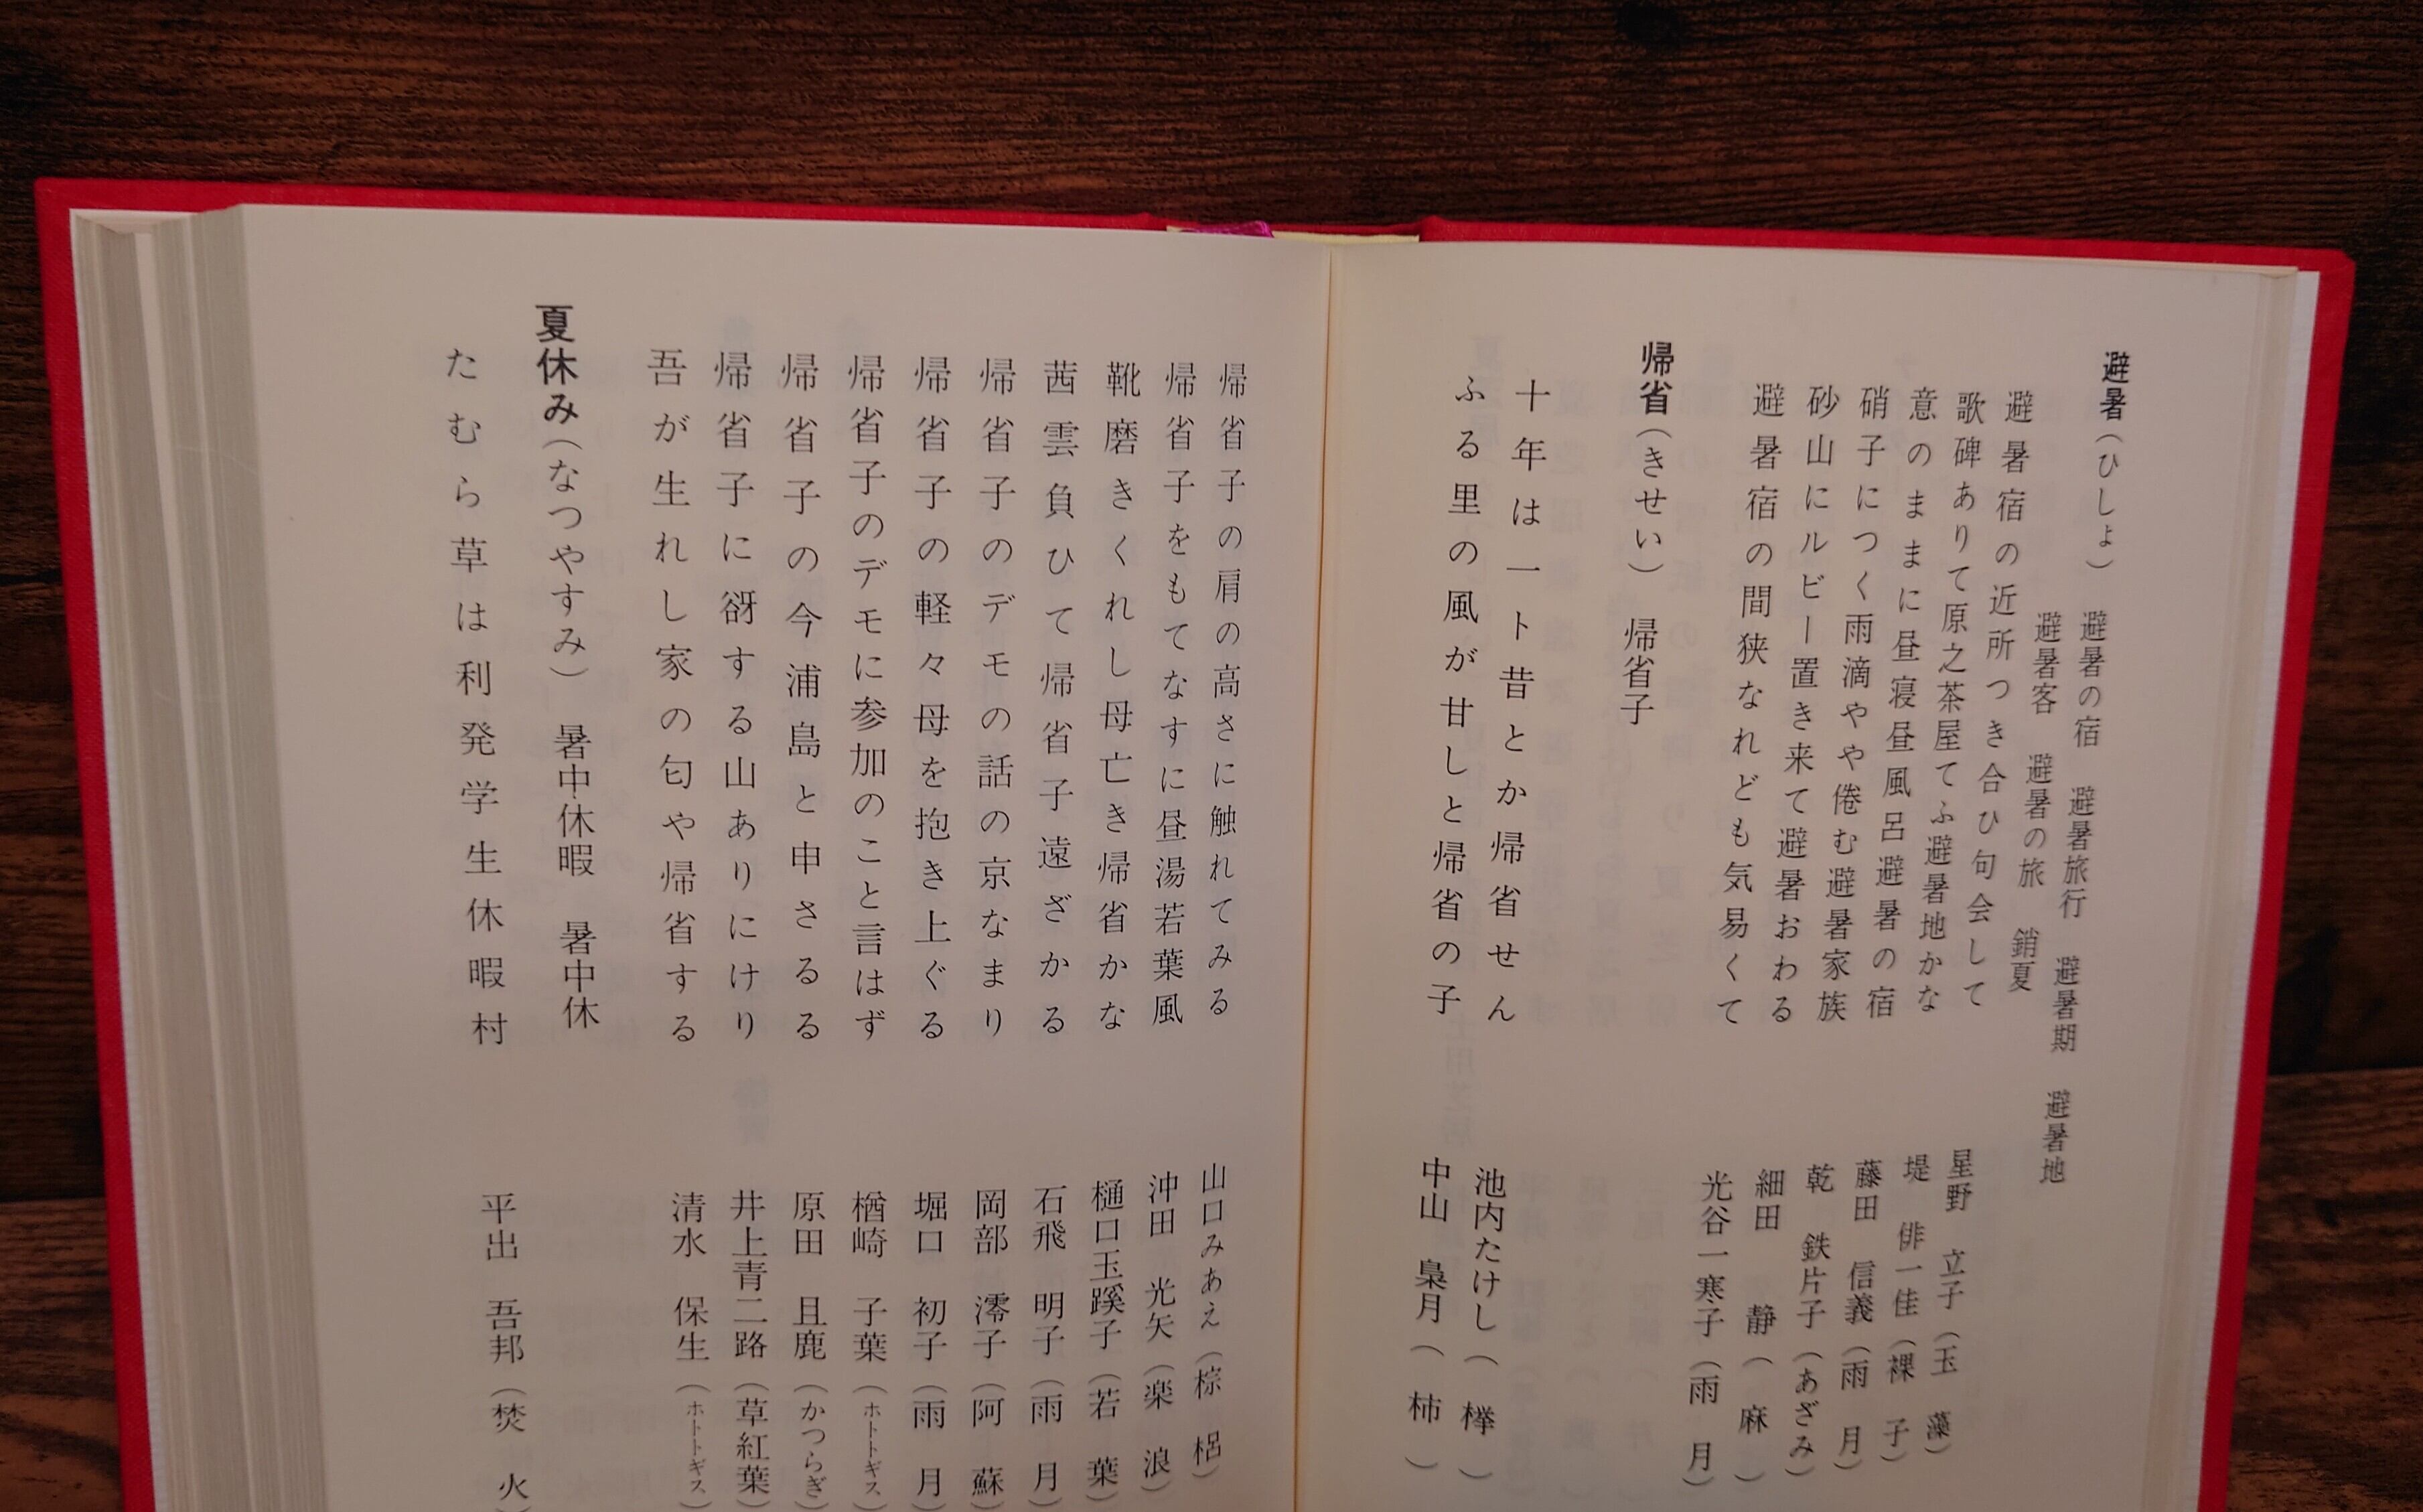 避暑(ひしょ) 避暑の宿 避暑旅行 避暑期 避暑地
避暑客 避暑の旅 銷夏
避暑宿の近所つき合ひ句会して 星野 立子(玉 藻)
歌碑ありて原之茶屋てふ避暑地かな 堤 俳一佳(裸 子)
意のままに昼寝昼風呂避暑の宿 藤田 信義(雨 月)
硝子につく雨滴やや倦む避暑家族 乾 鉄片子(あざみ)
砂山にルビー置き来て避暑おわる 細田 静(麻)
避暑宿の間狭なれども気易くて 光谷一寒子(雨 月)
帰省(きせい) 帰省子
十年は一ト昔とか帰省せん 池内たけし(欅)
ふる里の風が甘しと帰省の子 中山 梟月(柿)
帰省子の肩の高さに触れてみる 山口みあえ(棕 梠)
帰省子をもてなすに昼湯若葉風 沖田 光矢(楽 浪)
靴磨きくれし母亡き帰省かな 樋口玉蹊子(若 葉)
茜雲負ひて帰省子遠ざかる 石飛 明子(雨 月)
帰省子のデモの話の京なまり 岡部 澪子(阿 蘇)
帰省子の軽々母を抱き上ぐる 堀口 初子(雨 月)
帰省子のデモに参加のこと言はず 楢崎 子葉(ホトトギス)
帰省子の今浦島と申さるる 原田 且鹿(かつらぎ)
帰省子に谺する山ありにけり 井上青二路(草紅葉)
吾が生れし家の匂や帰省する 清水 保生(ホトトギス)
夏休み(なつやすみ) 暑中休暇 暑中休
たむら草は利発学生休暇村 平出 吾邦(焚 火)